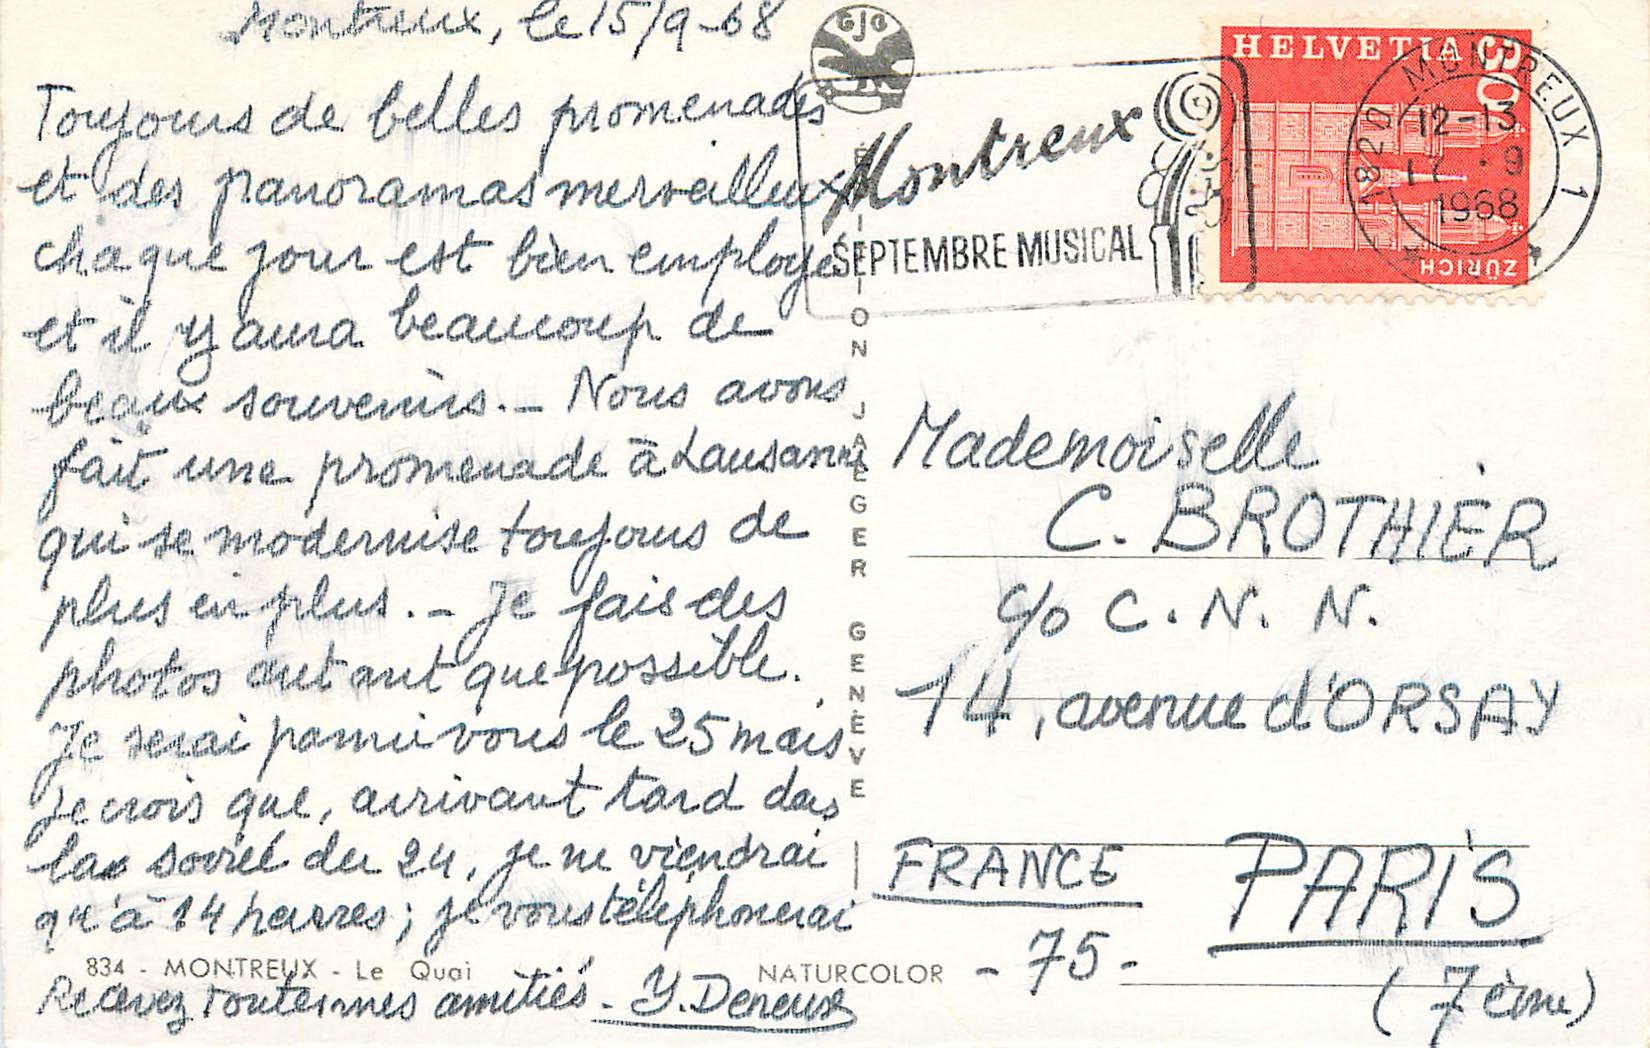 Montreux, le 15/9-68
Toujours de belles promenades
et des panoramas merveilleux
chaque jour est bien employé
et il y aura beaucoup de
beaux souvenirs. - Nous avons
fait une promenade à Lausanne
qui se modernise toujours de
plus en plus. - Je fais des
photos autant que possible.
Je serai parmi vous le 25 mais
je crois que, arrivant tard dans
la soirée du 24, je ne viendrai
qu'à 14 heures; je vous téléphonerai
834 - MONTREUX - Le Quai
Recevez toutes mes amitiés. Y. Deneux
NATURCOLOR
GJG
ÉDITION JAEGER GENÈVE
Montreux
SEPTEMBRE MUSICAL
HELVETIA 30
ZÜRICH
1820 MONTREUX 1
12-13
17.-9
1968
Mademoiselle
C. BROTHIER
c/o C. N. N.
14, avenue d'ORSAY
FRANCE PARIS
- 75 -
(7ème)